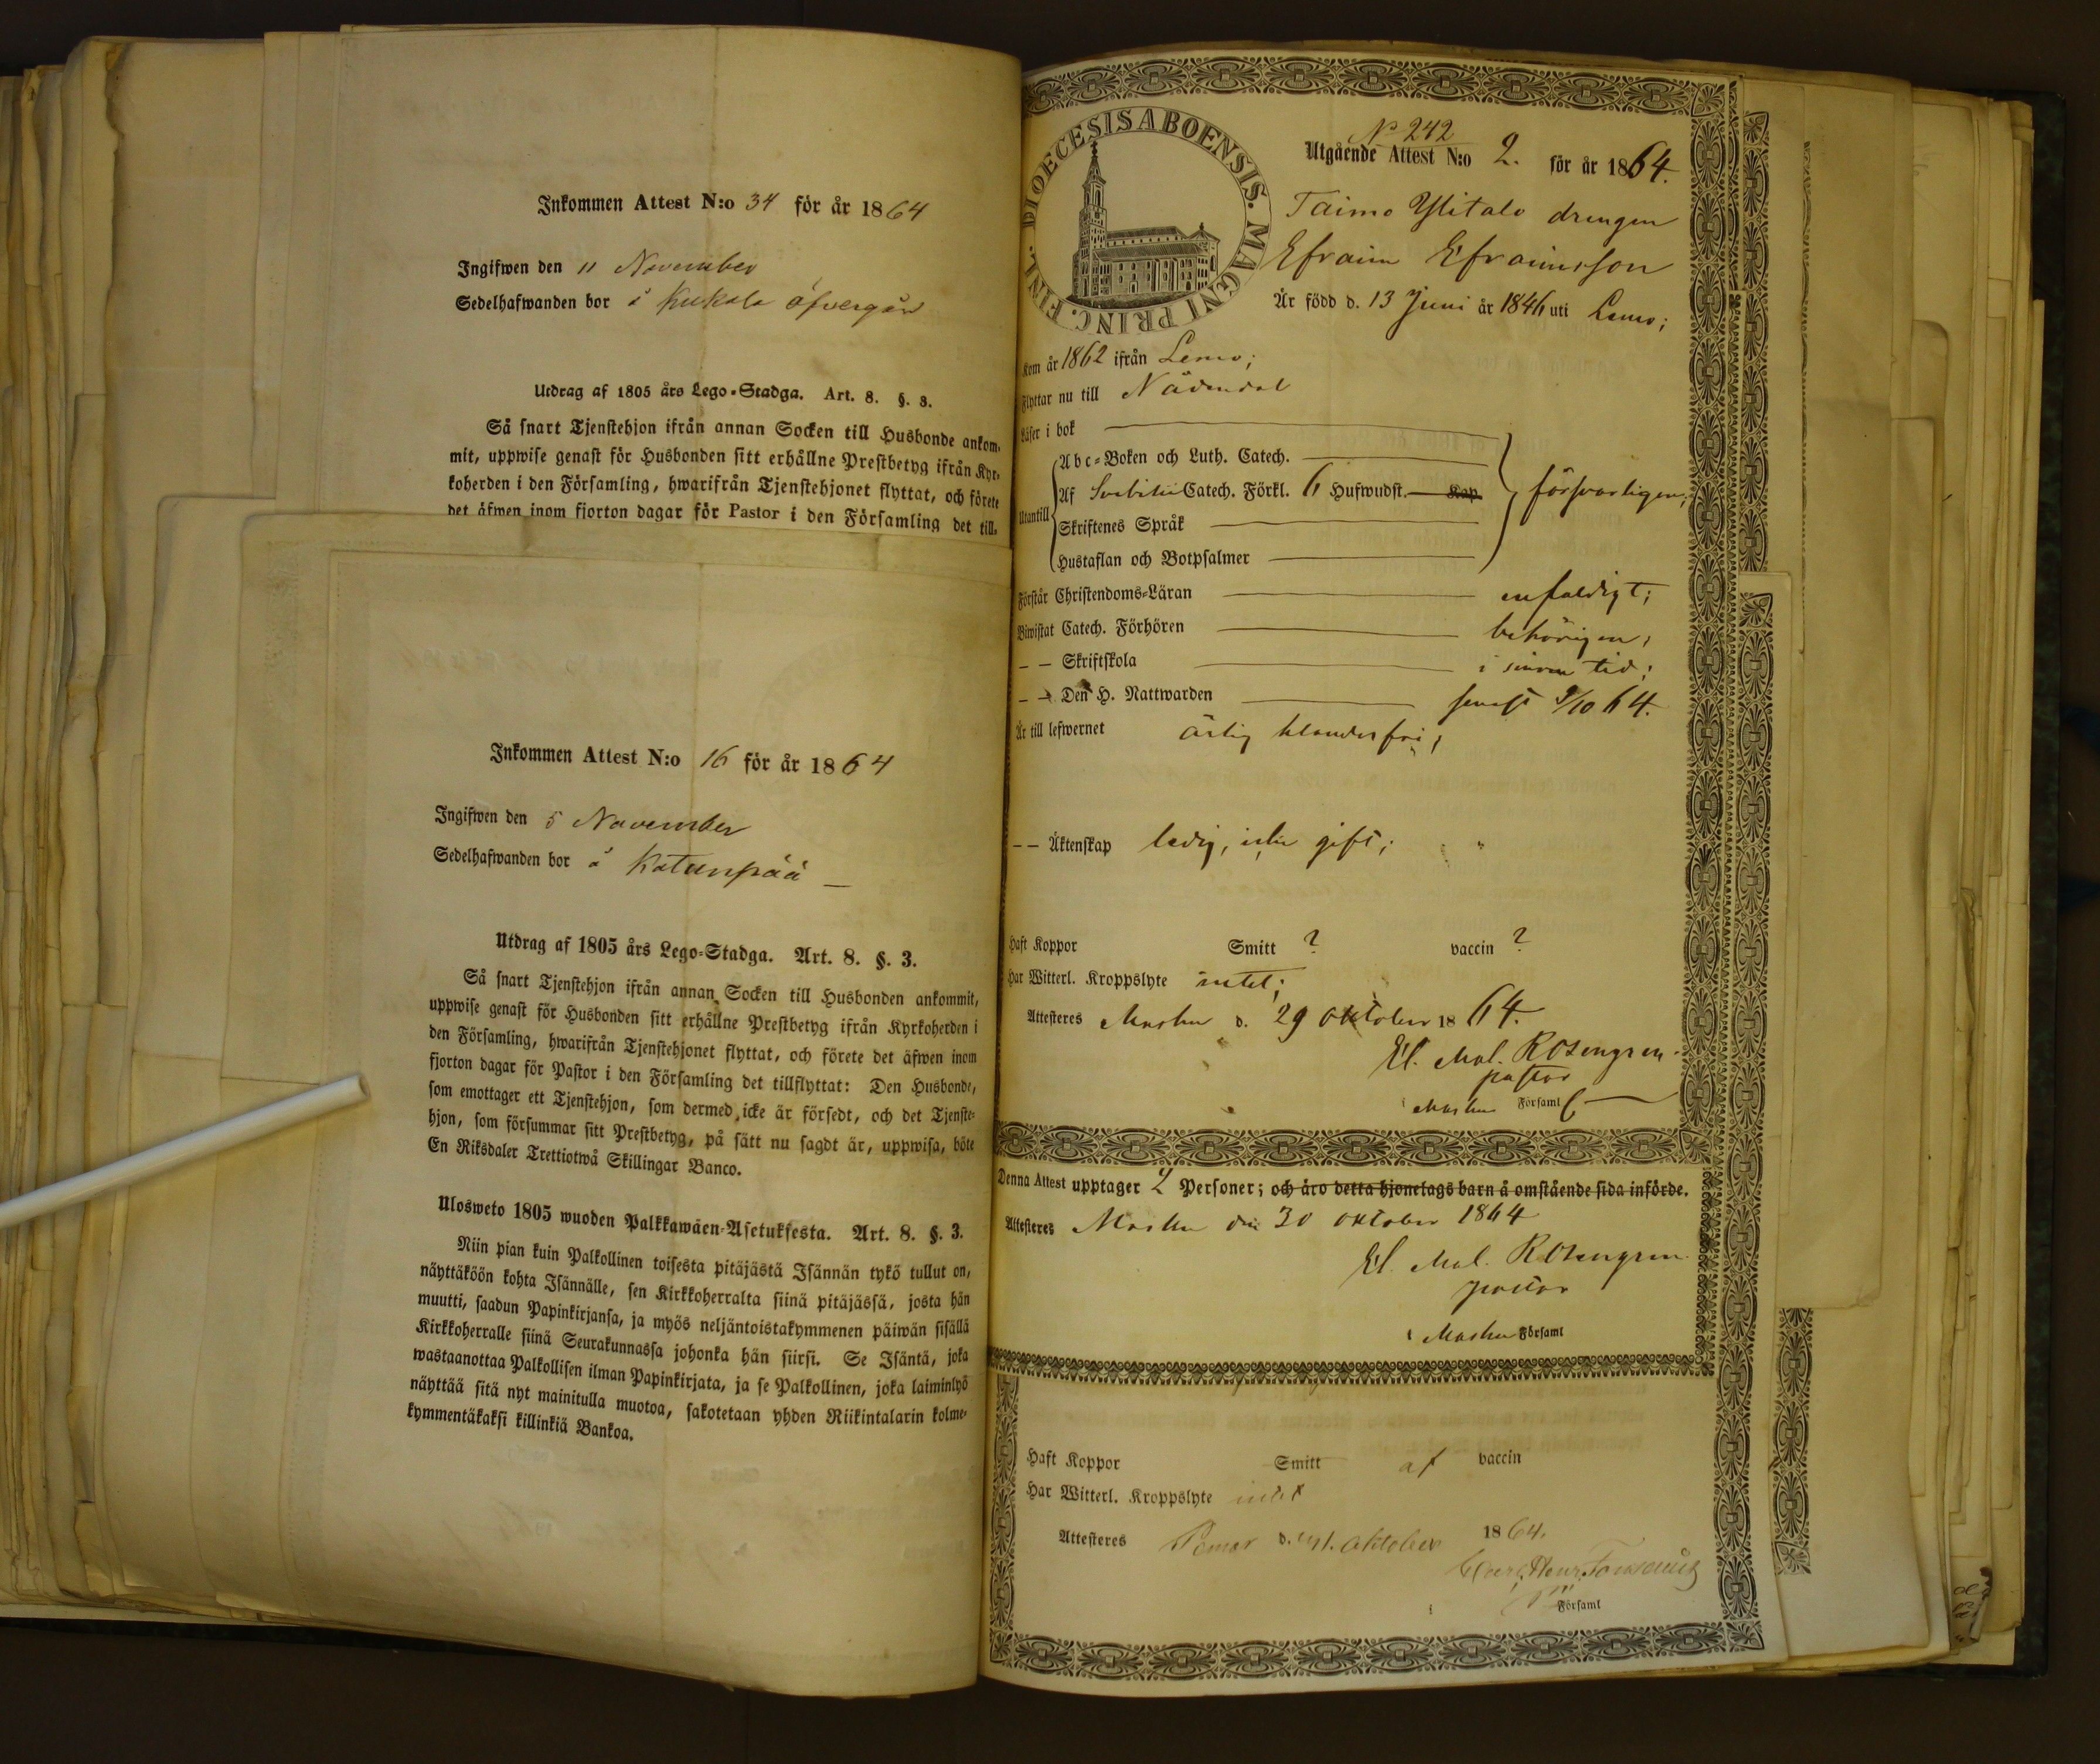 Inkommen Attest N:o 34 för år 1864
Ingifwen den 11 November
Sedelhafwanden bor å Kukola öfvergård
Utdrag af 1805 års Lego-Stadga. Art. 8. §. 3.
Så snart Tjenstehjon ifrån annan Socken till Husbonde ankom-
mit, uppwise genast för Husbonden sitt erhållne Prestbetyg ifrån Kyr-
koherden i den Församling, hwarifrån Tjenstehjonet flyttat, och förete
det äfwen inom fjorton dagar för Pastor i den Församling det till-
Inkommen Attest N:o 16 för år 1864
Ingifwen den 5 November
Sedelhafwanden bor å Katanpää
Utdrag af 1805 års Lego-Stadga. Art. 8. §. 3.
Så snart Tjenstehjon ifrån annan Socken till Husbonden ankommit,
uppwise genast för Husbonden sitt erhållne Prestbetyg ifrån Kyrkoherden i
den Församling, hwarifrån Tjenstehjonet flyttat, och förete det äfwen inom
fjorton dagar för Pastor i den Församling det tillflyttat: Den Husbonde,
som emottager ett Tjenstehjon, som dermed icke är försedt, och det Tjenste-
hjon, som försummar sitt Prestbetyg, på sätt nu sagdt är, uppwisa, böte
En Riksdaler Trettiotwå Skillingar Banco.
Ulosweto 1805 wuoden Palkkawäen-Asetuksesta. Art. 8. §. 3.
Niin pian kuin Palkollinen toisesta pitäjästä Isännän tykö tullut on,
näyttäköön kohta Isännälle, sen Kirkkoherralta siinä pitäjässä, josta hän
muutti, saadun Papinkirjansa, ja myös neljäntoistakymmenen päiwän sisällä
Kirkkoherralle siinä Seurakunnassa johonka hän siirsi. Se Isäntä, joka
wastaanottaa Palkollisen ilman Papinkirjata, ja se Palkollinen, joka laiminlyö
näyttää sitä nyt mainitulla muotoa, sakotetaan yhden Riikintalarin kolme-
kymmentäkaksi killinkiä Bankoa.
FINL. DIOECESIS ABOENSIS. MAGNI PRINC.
No 242
Utgående Attest N:o 2. för år 1864.
Taimo Ylitalo drengen
Efraim Efraimsson
Är född d. 13 Juni år 1846 uti Lemo;
Kom år 1862 ifrån Lemo;
Flyttar nu till Nådendal
Läser i bok
Abc-Boken och Luth. Catech.
Utantill Af Svebilii Catech. Förkl. 6 Hufwudst. Kap. försvarligen;
Skriftenes Språk
Hustaflan och Botpsalmer
Förstår Christendoms-Läran enfaldigt;
Biwistat Catech. Förhören behörigen;
— — Skriftskola i sinom tid;
— — Den H. Nattwarden senast 9/10 64.
Är till lefwernet ärlig klanderfri;
— — Äktenskap ledig, icke gift;
Haft Koppor Smitt ? vaccin ?
Har Witterl. Kroppslyte intet;
Attesteres Masku d. 29 oktober 1864.
El. Mal. Rosengren
pastor
i Masku Församl
Denna Attest upptager 2 Personer; och äro detta hjonelags barn å omstående sida införde.
Attesteres Masku den 30 oktober 1864
El. Mal. Rosengren
pastor
i Masku Församl
Haft Koppor Smitt af vaccin
Har Witterl. Kroppslyte intet
Attesteres Pemar d. oktober 1864.
Carl Henr.
i Församl